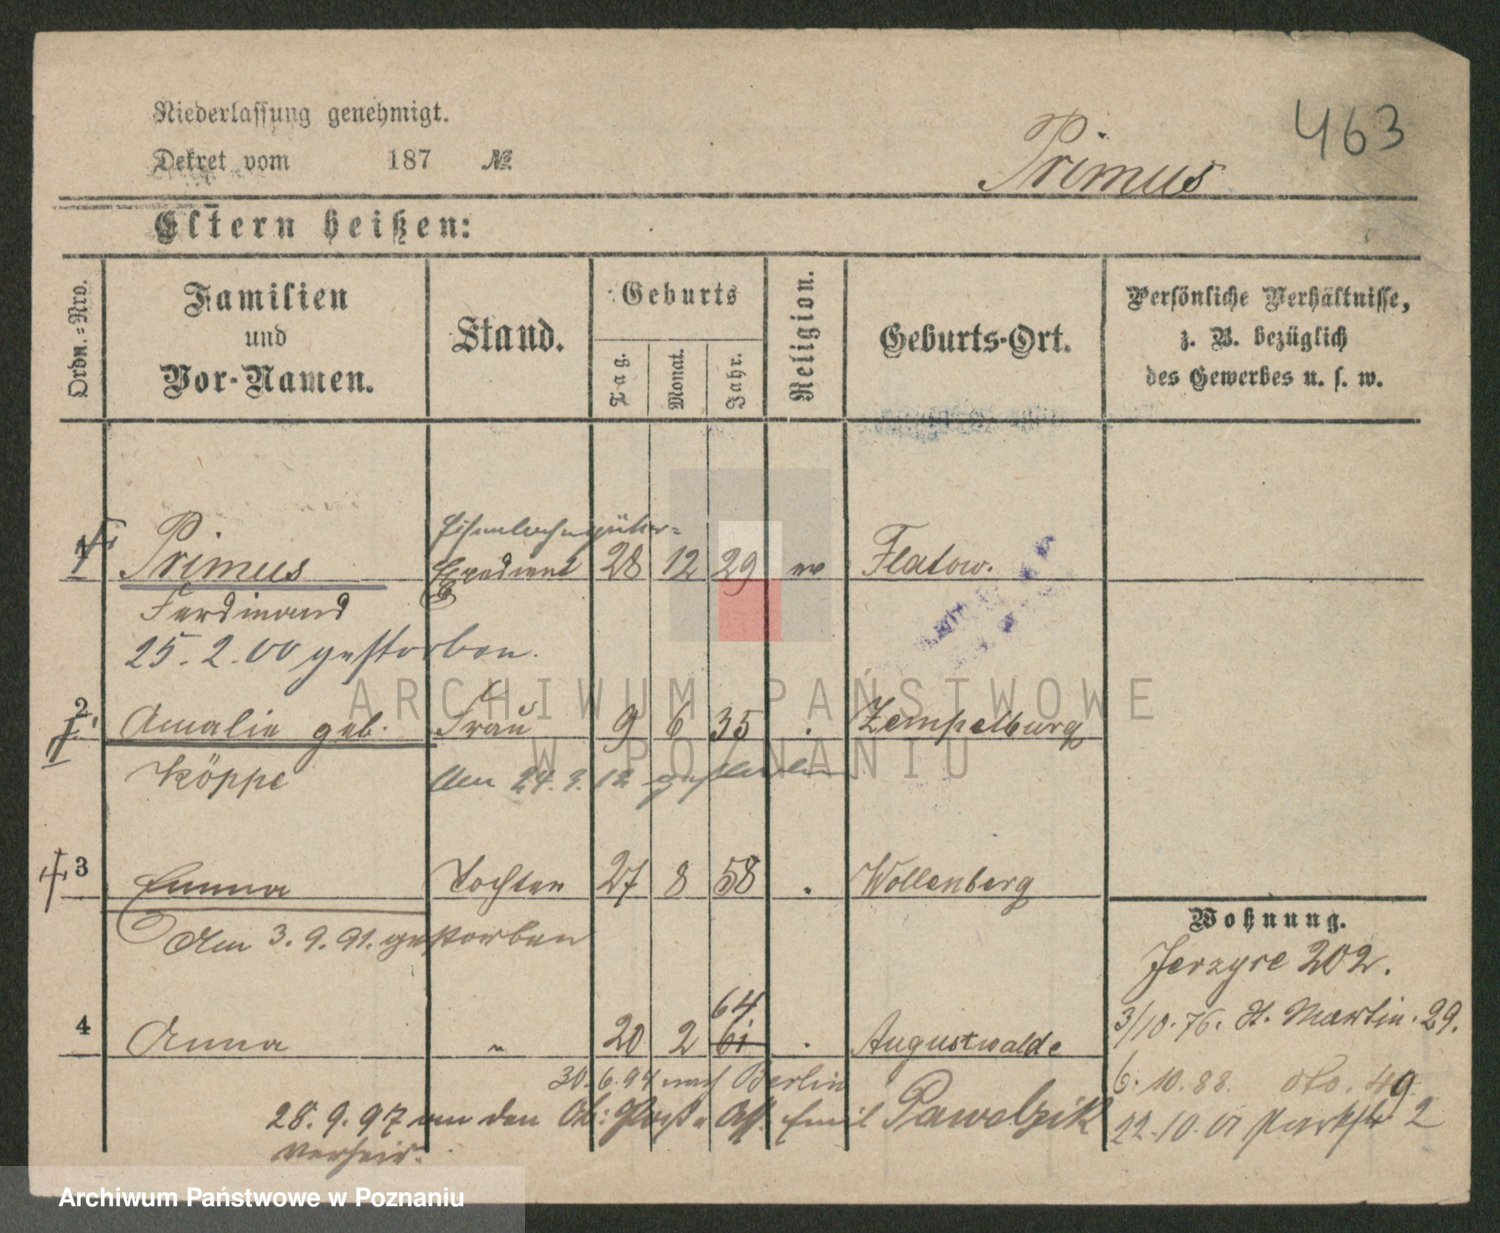 463
Niederlassung genehmigt.
Dekret vom 187 №
Primus
Eltern heißen:
Ordn.=Nro.
Familien und Vor-Namen.
Stand.
Geburts
Tag.
Monat.
Jahr.
Religion.
Geburts-Ort.
Persönliche Verhältnisse,
z. B. bezüglich
des Gewerbes u. s. w.
Eisenbahngüter=
1 Primus Expedient 28 12 29 ev Flatow.
Ferdinand
25.2.00 gestorben.
2 Amalie geb. Frau 9 6 35 . Zempelburg
Köppe am 24.9.12 gestorben
3 Emma Tochter 27 8 58 . Wollenberg
Am 3.9.91. gestorben
Wohnung.
Jerzyce 202.
64
4 Anna " 20 2 61 . Augustwalde
3/10.76. St. Martin.29.
30.6.94 nach Berlin
6.10.88. dto. 49
28.9.97 an den Emil Pawelzik
22.10.01 Parkstr 2
verheir.
ARCHIWUM PAŃSTWOWE
W POZNANIU
Archiwum Państwowe w Poznaniu